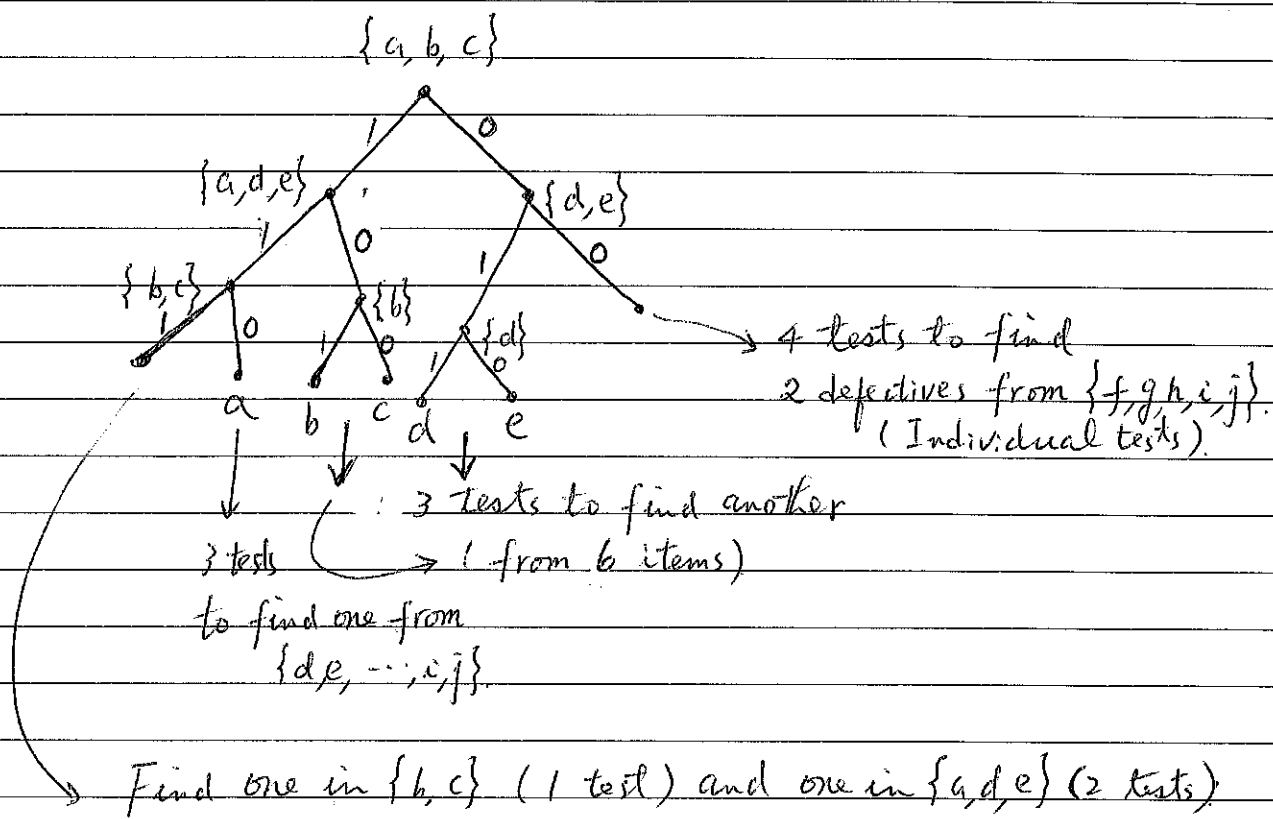 {a, b, c}
1 0
{a,d,e} {d,e}
1 0 1 0
{b,c} {b} {d}
1 0 1 0 1 0
a b c d e
4 tests to find
2 defectives from {f,g,h,i,j}.
(Individual tests).
: 3 tests to find another
1 from 6 items)
3 tests
to find one from
{d,e, ...,i,j}.
Find one in {b,c} (1 test) and one in {a,d,e} (2 tests).